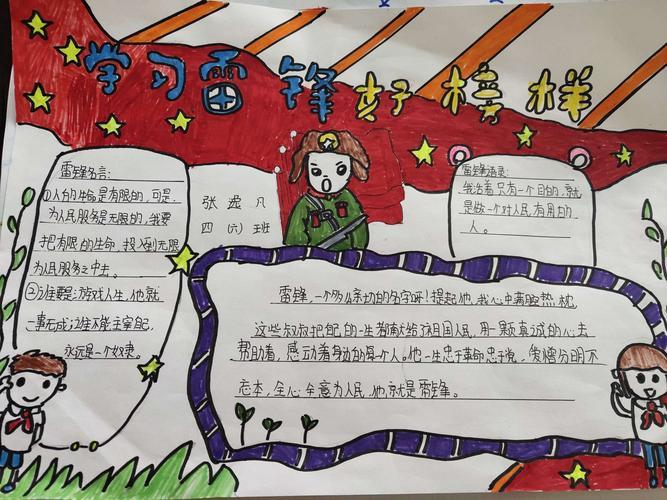 学习雷锋好榜样
雷锋名言:
①人的生命是有限的,可是,
为人民服务是无限的,我要
把有限的生命,投入到无限
为人民服务之中去。
②谁要是游戏人生,他就
一事无成;谁不能主宰自己,
永远是一个奴隶。
张逸凡
四(六)班
雷锋语录:
我活着只有一个目的,就
是做一个对人民有用的
人。
雷锋,一个多么亲切的名字呀!提起他,我心中满腔热枕
这些叔叔把自己的一生都献给了祖国人民,用一颗真诚的心去
帮助着,感动着身边的每个人。他一生忠于革命忠于党,爱憎分明不
忘本,全心全意为人民,他就是雷锋。